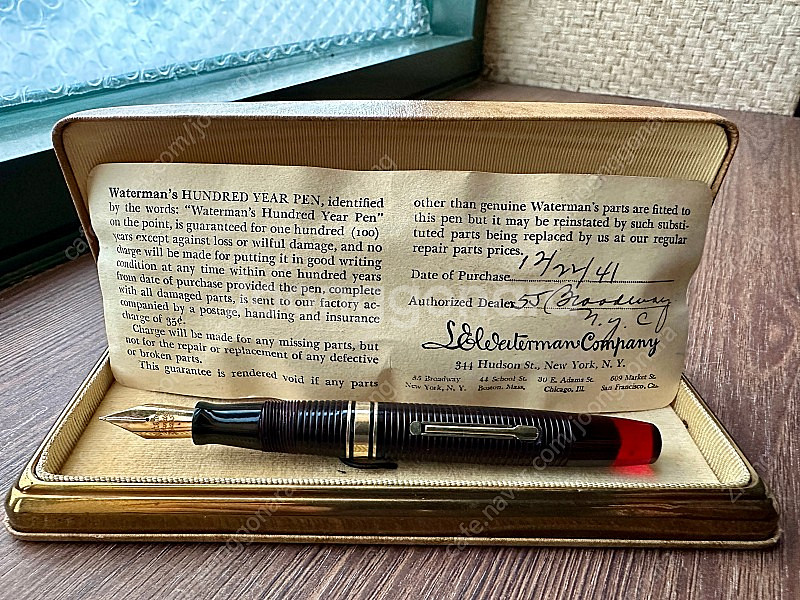 Waterman's HUNDRED YEAR PEN, identified
by the words: "Waterman's Hundred Year Pen"
on the point, is guaranteed for one hundred (100)
years except against loss or wilful damage, and no
charge will be made for putting it in good writing
condition at any time within one hundred years
from date of purchase provided the pen, complete
with all damaged parts, is sent to our factory ac-
companied by a postage, handling and insurance
charge of 35¢.
Charge will be made for any missing parts, but
not for the repair or replacement of any defective
or broken parts.
This guarantee is rendered void if any parts
other than genuine Waterman's parts are fitted to
this pen but it may be reinstated by such substi-
tuted parts being replaced by us at our regular
repair parts prices.
Date of Purchase 12/22/41
Authorized Dealer 55 Broadway
N.Y.C
L.E. Waterman Company
344 Hudson St., New York, N. Y.
55 Broadway 44 School St. 30 E. Adams St. 609 Market St.
New York, N. Y. Boston, Mass. Chicago, Ill. San Francisco, Ca.